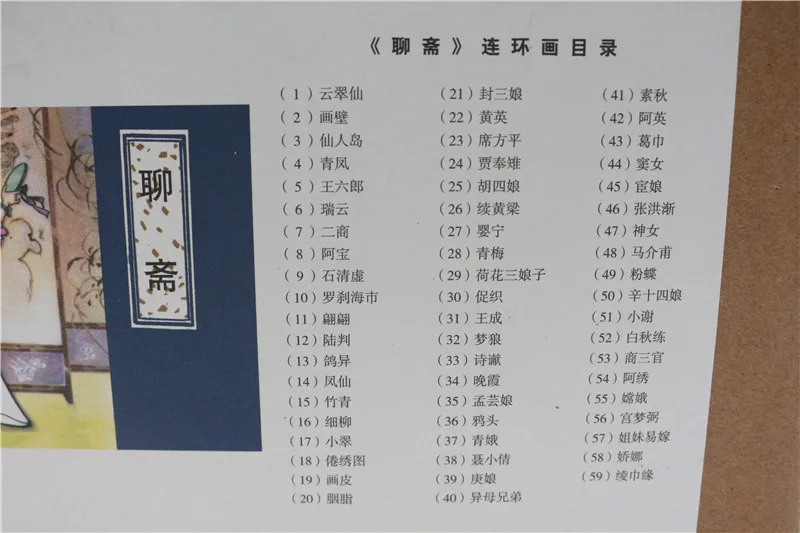 《聊斋》连环画目录
聊斋
（1）云翠仙
（2）画壁
（3）仙人岛
（4）青凤
（5）王六郎
（6）瑞云
（7）二商
（8）阿宝
（9）石清虚
（10）罗刹海市
（11）翩翩
（12）陆判
（13）鸽异
（14）凤仙
（15）竹青
（16）细柳
（17）小翠
（18）倦绣图
（19）画皮
（20）胭脂
（21）封三娘
（22）黄英
（23）席方平
（24）贾奉雉
（25）胡四娘
（26）续黄梁
（27）婴宁
（28）青梅
（29）荷花三娘子
（30）促织
（31）王成
（32）梦狼
（33）诗谳
（34）晚霞
（35）孟芸娘
（36）鸦头
（37）青娥
（38）聂小倩
（39）庚娘
（40）异母兄弟
（41）素秋
（42）阿英
（43）葛巾
（44）窦女
（45）宦娘
（46）张洪渐
（47）神女
（48）马介甫
（49）粉蝶
（50）辛十四娘
（51）小谢
（52）白秋练
（53）商三官
（54）阿绣
（55）嫦娥
（56）宫梦弼
（57）姐妹易嫁
（58）娇娜
（59）绫巾缘